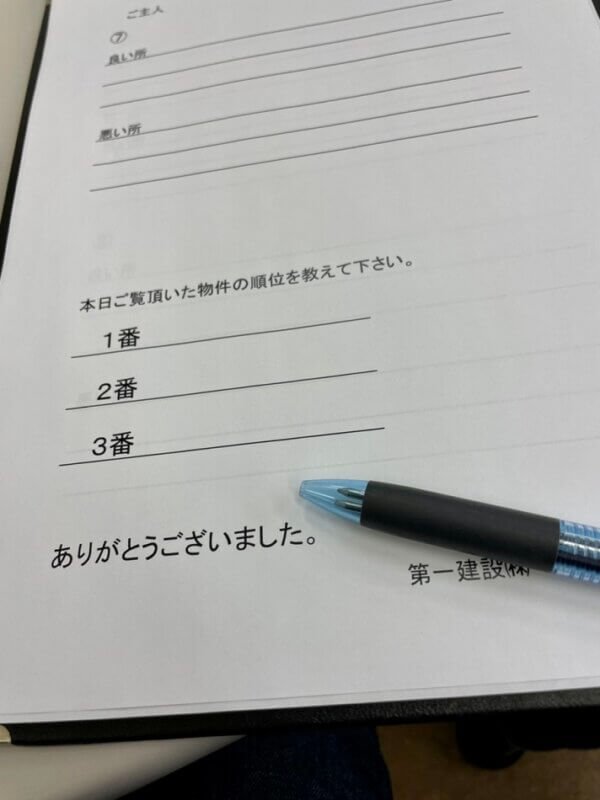 ご主人
⑦
良い所
悪い所
本日ご覧頂いた物件の順位を教えて下さい。
1番
2番
3番
ありがとうございました。
第一建設㈱